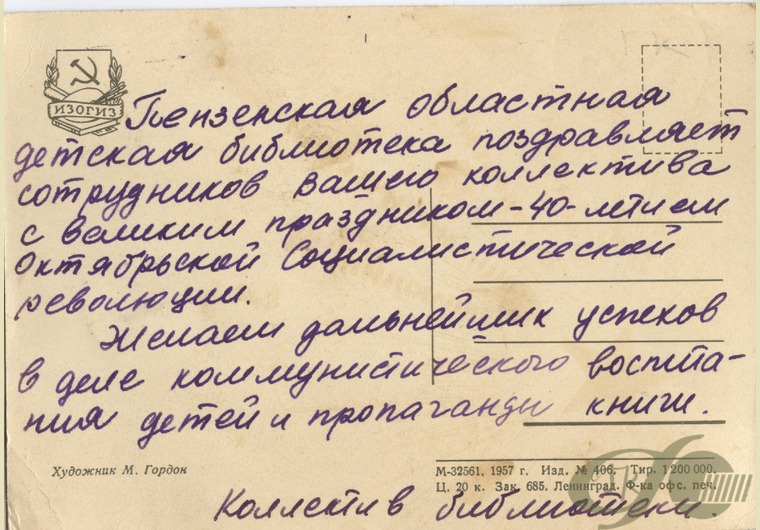 ИЗОГИЗ
Пензенская областная
детская библиотека поздравляет
сотрудников Вашего коллектива
с великим праздником-40-летием
Октябрьской Социалистической
революции.
Желаем дальнейших успехов
в деле коммунистического воспита-
ния детей и пропаганды книги.
Художник М. Гордон
М-32561. 1957 г. Изд. № 406. Тир. 1 200 000.
Ц. 20 к. Зак. 685. Ленинград. Ф-ка офс. печ.
Коллектив библиотеки.